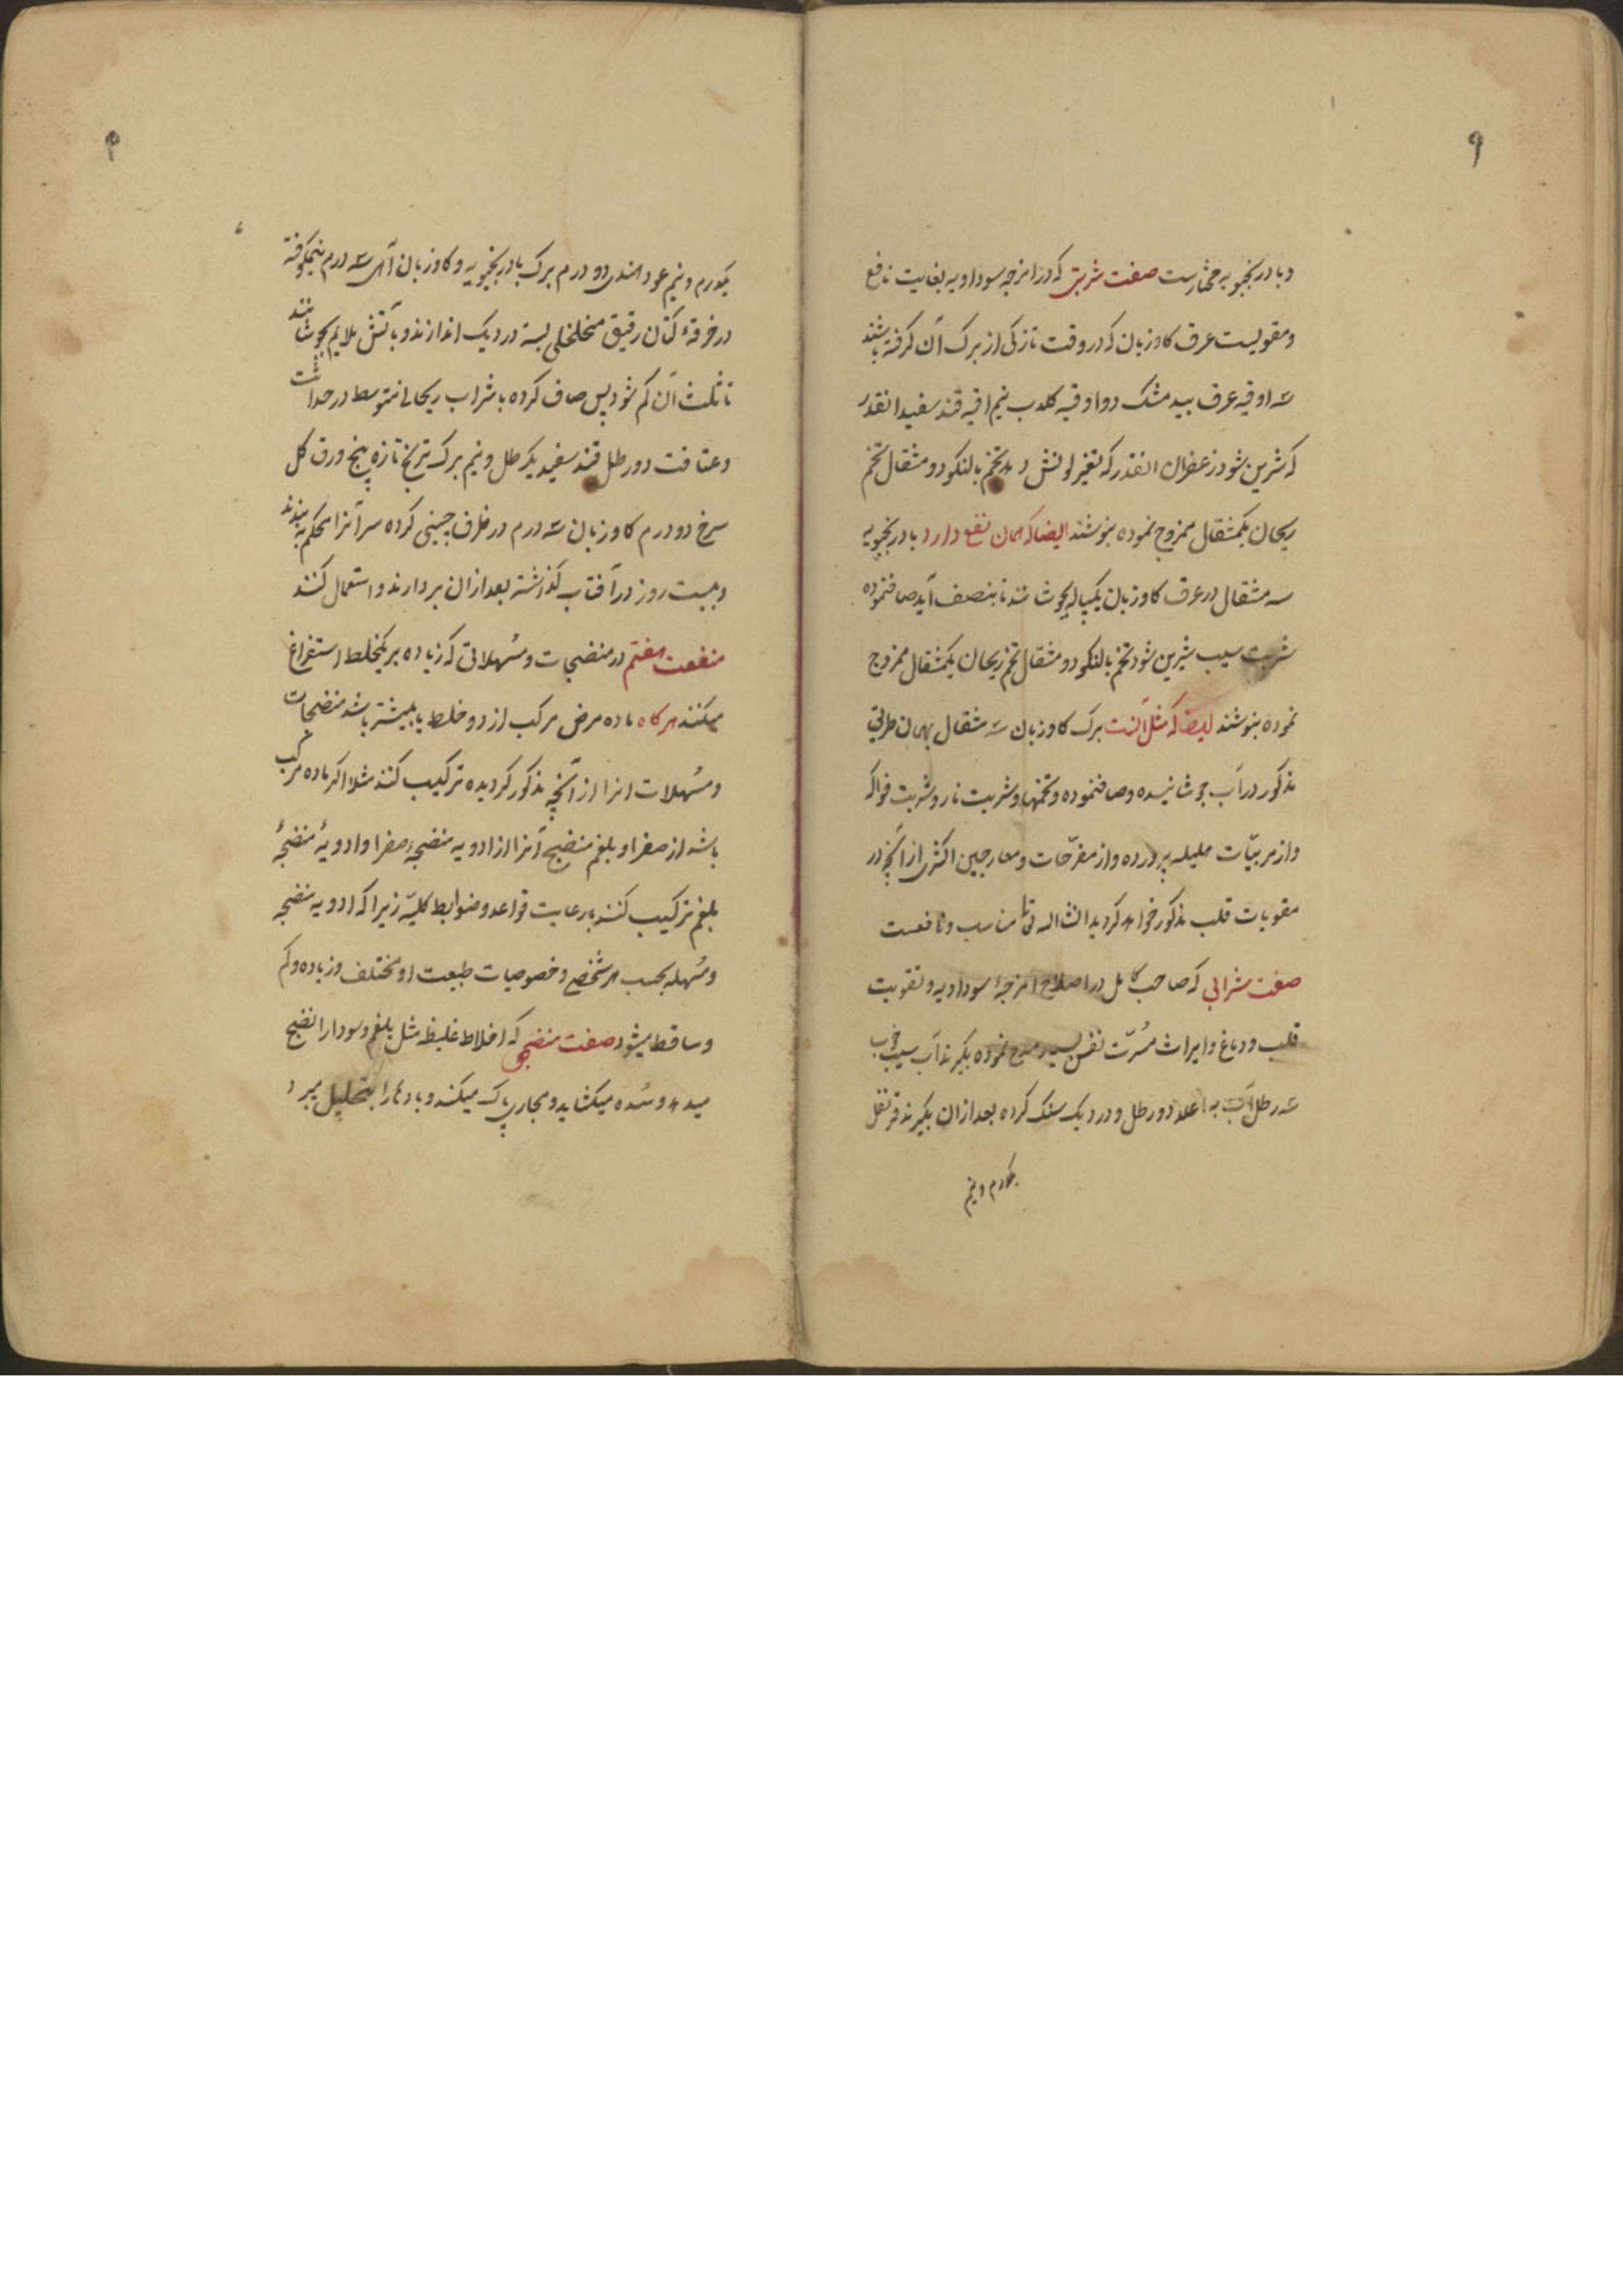 ۹
و بادرنجبویه مختارست صفت شربتی که در امزجه سوداویه بغایت نافع
و مقویست عرق کاوزبان که در وقت تازکی از برک آن کرفته باشند
سه اوقیه عرق بیدمشک دو اوقیه کلاب نیم اقیه قند سفید انقدر
که شرین شود زعفران انقدر که تغیر لونش دهد تخم بالنکو دو مثقال تخم
ریحان یکمثقال ممزوج نموده بنوشند ایضا که همان نفع دارد بادرنجبویه
سه مثقال در عرق کاوزبان یکپیاله بجوشانند تا بنصف آید صاف نموده
شربت سیب شیرین شود تخم بالنکو دو مثقال تخم ریحان یکمثقال ممزوج
نموده بنوشند ایضا که مثل آنست برک کاوزبان سه مثقال بهمان طریق
مذکور در آب جوشانیده و صاف نموده و تخمها و شربت نار و شربت فواکه
و از مربیّات هلیله پرورده و از مفرّحات و معاجین اکثری از آنچه در
مقویات قلب مذکور خواهد کردید انشا اله تعالی مناسب و نافعست
صفت شرابی که صاحب کامل در اصلاح امزجهٔ سوداویه و تقویت
قلب و دماغ و ایراث مسرّت نفس بسیار مدح نموده بکیرند آب سیب خوب
سه رطل آب به اعلا دو رطل و در دیک سنک کرده بعد ازان بکیرند قرنفل
یکدرم و نیم
یکدرم و نیم عود هندی دو درم برک بادرنجبویه و کاوزبان از هر یک سه درم نیمکوفته
در خرقهٔ کتان رقیق متخلخلی بسته در دیک اندازند و بآتش ملایم بجوشانند
تا ثلث آن کم شود پس صاف کرده با شراب ریحانی متوسط در حداثت
و عتاقت دو رطل قند سفید یکرطل و نیم برک ترنج تازه پنج ورق کل
سرخ دو درم کاوزبان سه درم در ظرف چینی کرده سر آنرا محکم به بندند
و بیست روز در آفتاب کذاشته بعد ازان بردارند و استعمال کنند
منفعت هفتم در منضجات و مسهلاتی که زیاده بر یکخلط استفراغ
میکنند هرکاه ماده مرض مرکب از دو خلط یا بیشتر باشد منضجات
و مسهلات انرا از آنچه مذکور کردیده ترکیب کنند مثلا اکر ماده مرکب
باشد از صفرا و بلغم منضج آنرا از ادویه منضجهٔ صفرا و ادویهٔ منضجهٔ
بلغم ترکیب کنند با رعایت قواعد و ضوابط کلیّه زیرا که ادویه منضجه
و مسهله بحسب هر شخص و خصوصیات طبیعت او مختلف و زیاده و کم
و ساقط میشود صفت منضجی که اخلاط غلیظه مثل بلغم و سودا را نضج
میدهد و سده میکشاید و مجاری پاک میکند و بادها را بتحلیل میبرد